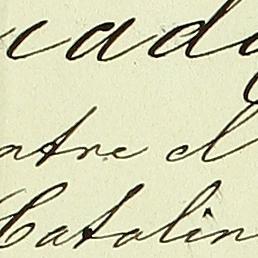 icado
ntre el
Catalin